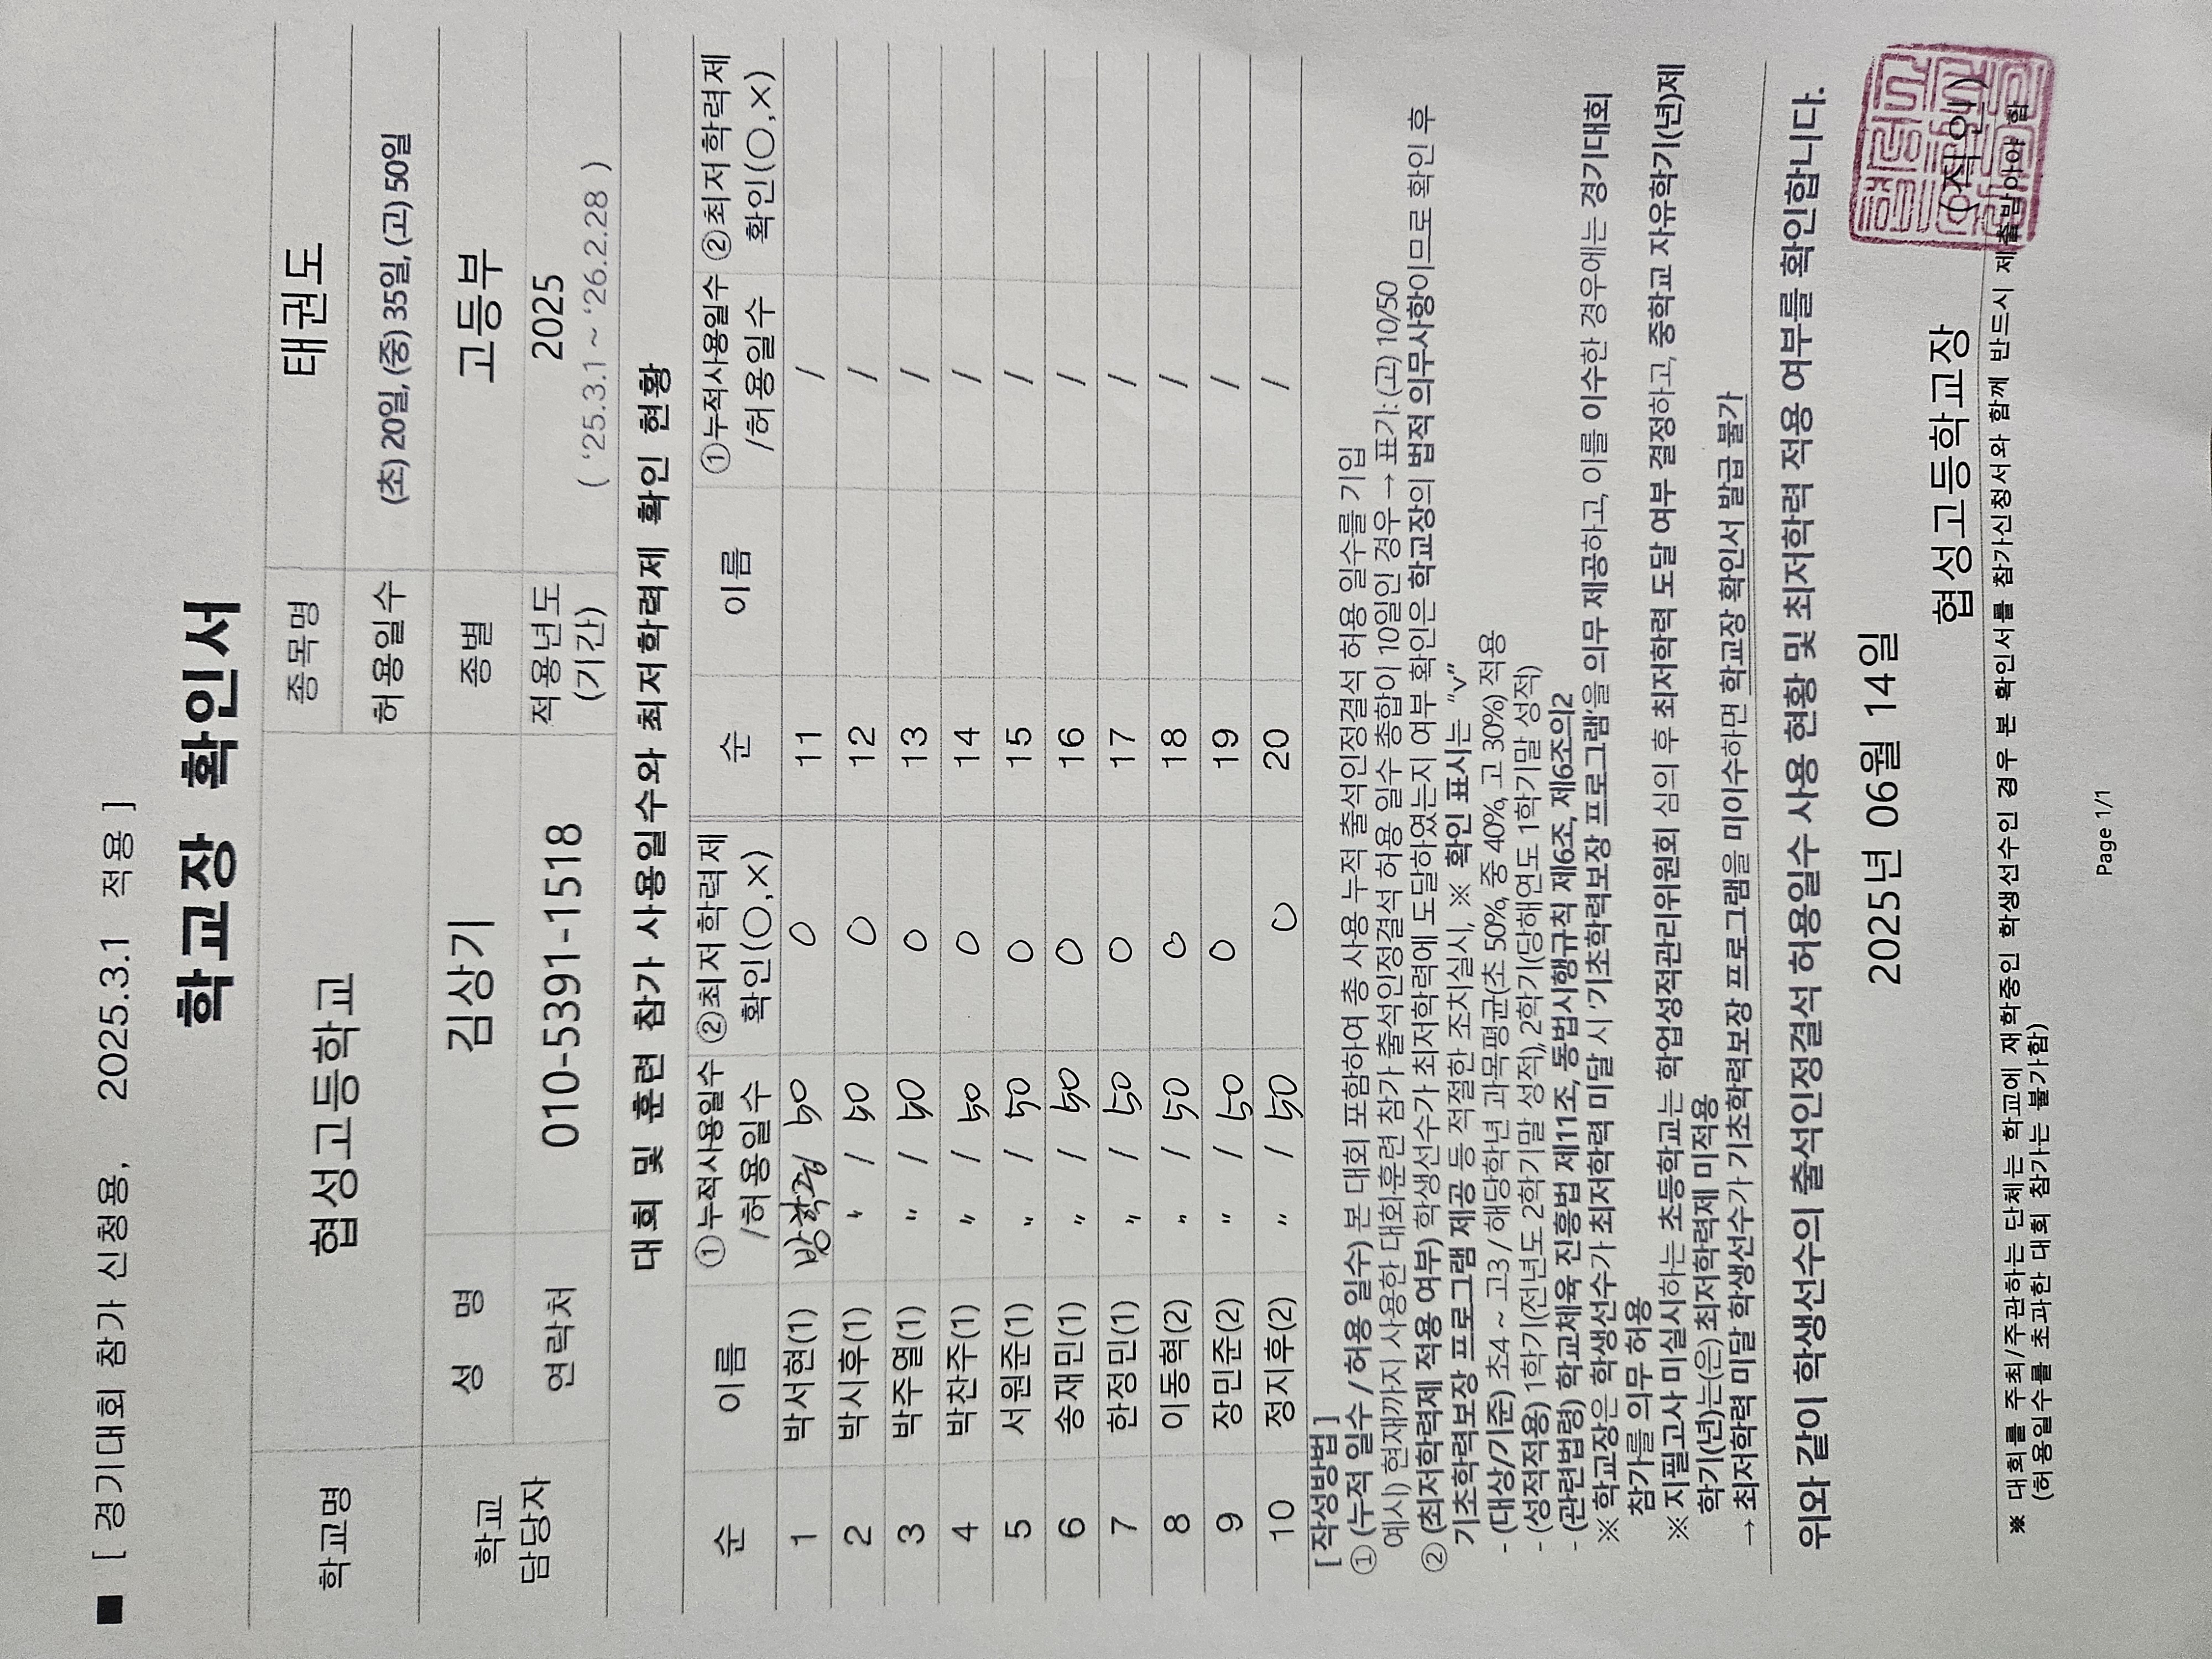 ■ [ 경기대회 참가 신청용, 2025.3.1 적용 ]
학교장 확인서
학교명 협성고등학교 종목명 태권도
허용일수 (초) 20일, (중) 35일, (고) 50일
학교 담당자 성 명 김상기 종별 고등부
연락처 010-5391-1518 적용년도 (기간) 2025 ( '25.3.1 ~ '26.2.28 )
대회 및 훈련 참가 사용일수와 최저학력제 확인 현황
순 이름 ①누적사용일수 /허용일수 ②최저학력제 확인(○,×) 순 이름 ①누적사용일수 /허용일수 ②최저학력제 확인(○,×)
1 박서현(1) 50 ○ 11 /
2 박시후(1) 〃 / 50 ○ 12 /
3 박주열(1) 〃 / 50 ○ 13 /
4 박찬주(1) 〃 / 50 ○ 14 /
5 서원준(1) 〃 / 50 ○ 15 /
6 송재민(1) 〃 / 50 ○ 16 /
7 한정민(1) 〃 / 50 ○ 17 /
8 이동혁(2) 〃 / 50 ○ 18 /
9 장민준(2) 〃 / 50 ○ 19 /
10 정지후(2) 〃 / 50 ○ 20 /
[작성방법]
① (누적 일수 / 허용 일수) 본 대회 포함하여 총 사용 누적 출석인정결석 허용 일수를 기입
예시) 현재까지 사용한 대회훈련 참가 출석인정결석 허용 일수 총합이 10일인 경우 → 표기: (고) 10/50
② (최저학력제 적용 여부) 학생선수가 최저학력에 도달하였는지 여부 확인은 학교장의 법적 의무사항이므로 확인 후
기초학력보장 프로그램 제공 등 적절한 조치실시, ※ 확인 표시는 "v"
- (대상/기준) 초4 ~ 고3 / 해당학년 과목평균(초 50%, 중 40%, 고 30%) 적용
- (성적적용) 1학기(전년도 2학기말 성적), 2학기(당해연도 1학기말 성적)
- (관련법령) 학교체육 진흥법 제11조, 동법시행규칙 제6조, 제6조의2
※ 학교장은 학생선수가 최저학력 미달 시 '기초학력보장 프로그램'을 의무 제공하고, 이를 이수한 경우에는 경기대회
참가를 의무 허용
※ 지필고사 미실시하는 초등학교는 학업성적관리위원회 심의 후 최저학력 도달 여부 결정하고, 중학교 자유학기(년)제
학기(년)는(은) 최저학력제 미적용
→ 최저학력 미달 학생선수가 기초학력보장 프로그램을 미이수하면 학교장 확인서 발급 불가
위와 같이 학생선수의 출석인정결석 허용일수 사용 현황 및 최저학력 적용 여부를 확인합니다.
2025년 06월 14일
협성고등학교장 (직인)
※ 대회를 주최/주관하는 단체는 학교에 재학중인 학생선수인 경우 본 확인서를 참가신청서와 함께 반드시 제출받아야 함
(허용일수를 초과한 대회 참가는 불가함)
Page 1/1